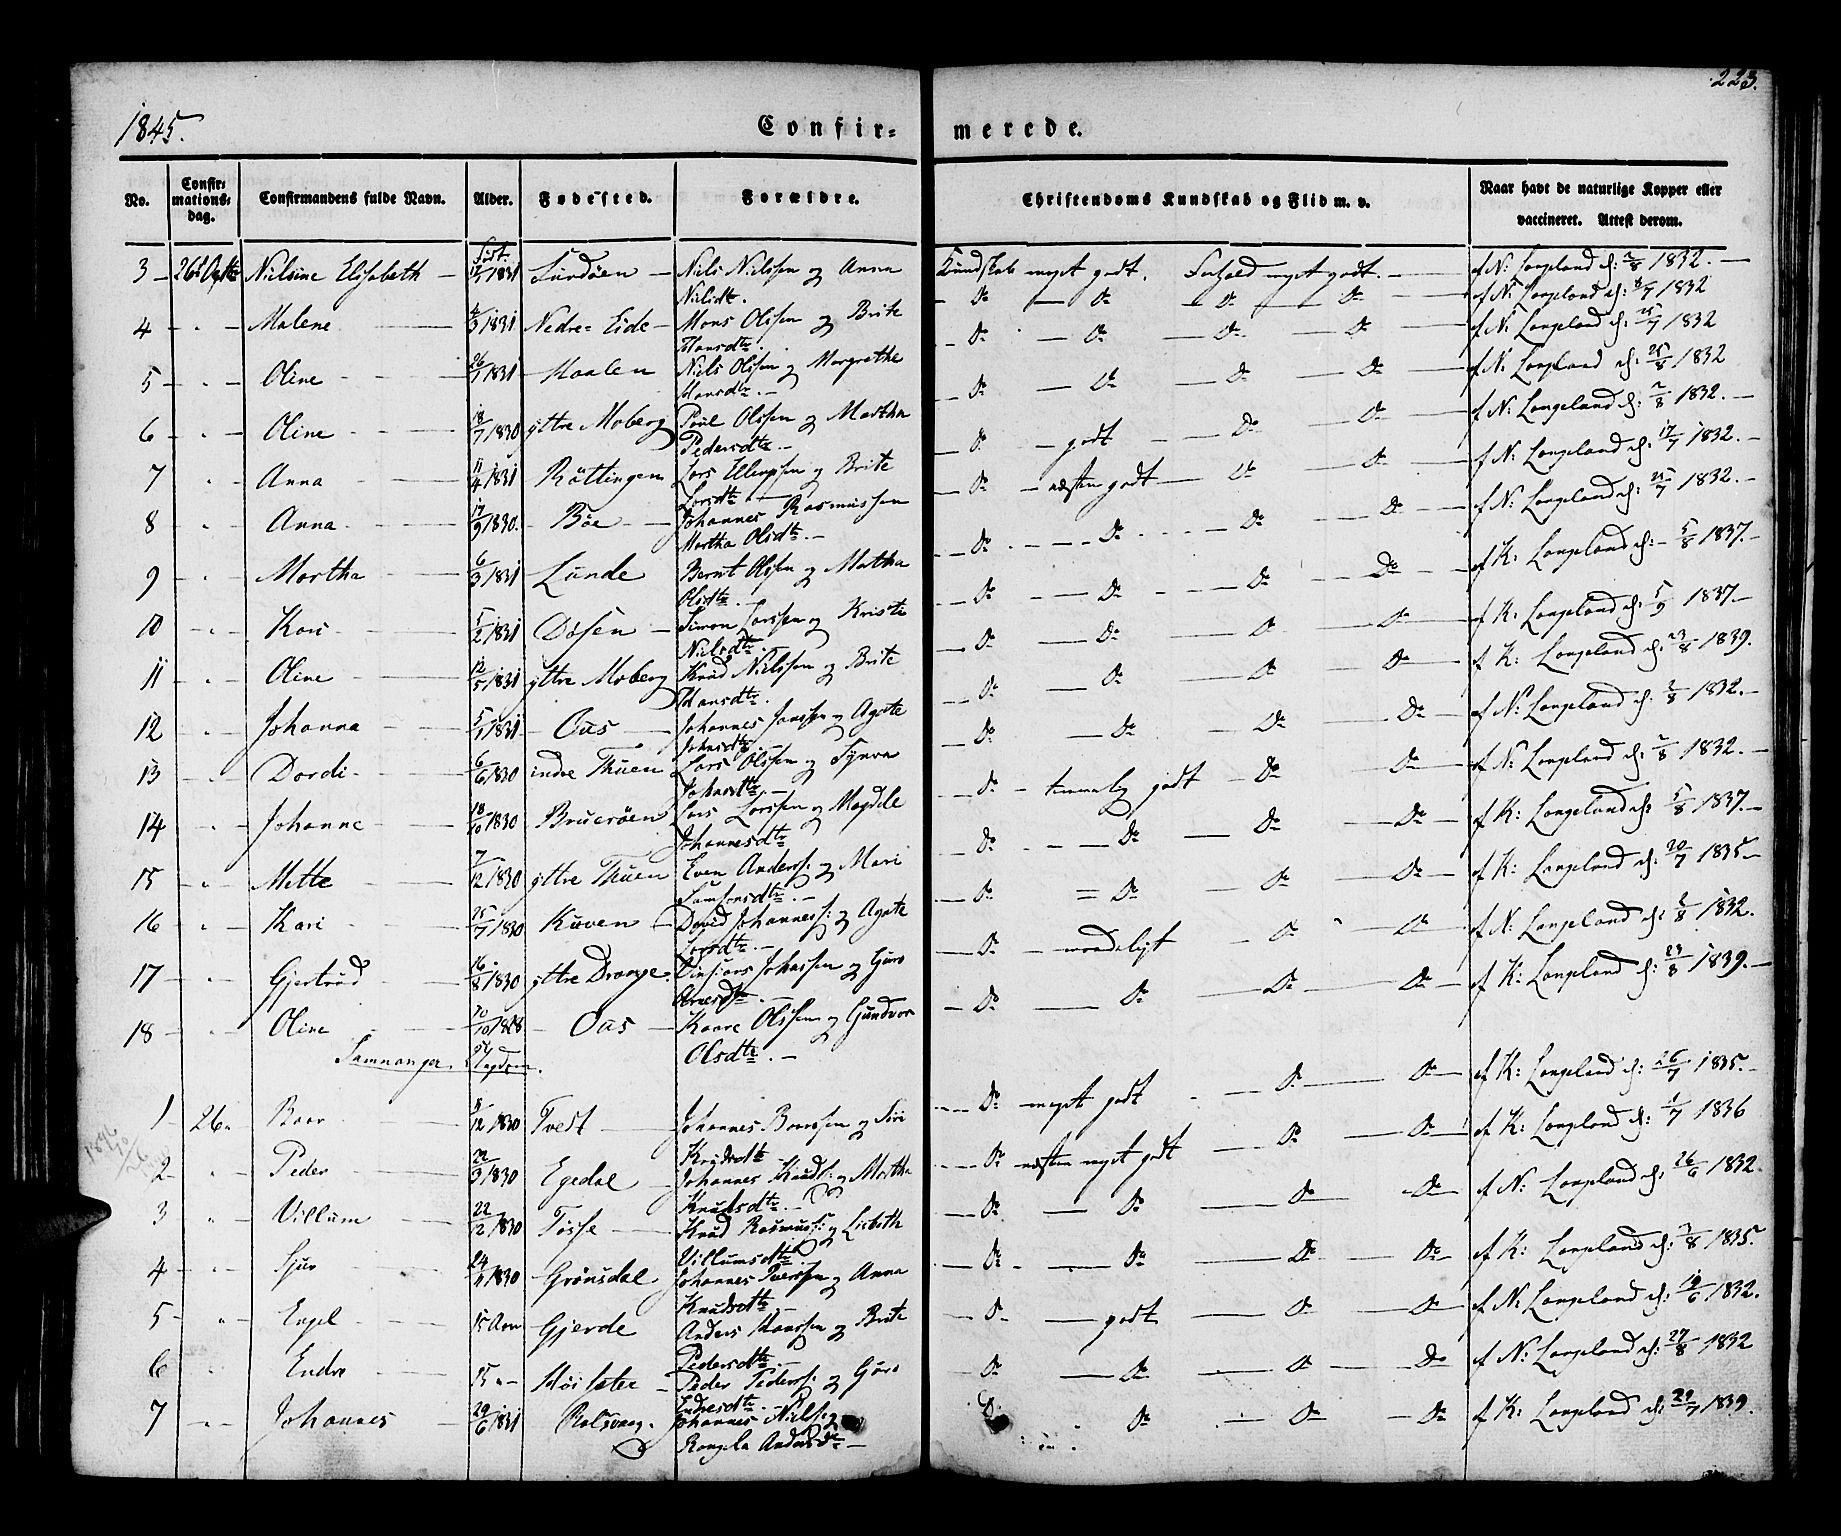 223.
1845.
Confir-merede.
No.
Confir-mations-dag.
Confirmandens fulde Navn.
Alder.
Fødested.
Forældre.
Christendoms Kundskab og Flid m. v.
Naar havt de naturlige Kopper eller vaccineret. Attest derom.
3 Nielsine Elisabeth 1831 Lundøen Niels Nielsen og Anna Kundskab meget godt. Forhold meget godt. af N: Langeland d: 2/8 1832.
Nielsdtr.
4 Malene 1831 Nedre Eide Mons Olsen og Brite Do Do Do Do af N: Langeland d: 1832
Hansdtr.
5 Oline 26/1 1831 Niels Olsen og Margrethe Do Do Do Do af N: Langeland d: 25/7 1832
Hansdtr.
6 Oline 18/7 1830 yttre Moberg Poul Olsen og Martha Do Do Do Do af N: Langeland d: 25/8 1832
Pedersdtr.
7 Anna 11/4 1831 Røttingen Lars og Brite Do godt Do Do af N: Langeland d: 2/8 1832.
Larsdtr
8 Anna 17/9 1830. Bøe Johannes Rasmussen Do næsten godt Do Do af N: Langeland d: 17/7 1832.
Martha Olsdtr.
9 Martha 6/3 1831 Lunde Bernt Olsen og Martha Do Do Do Do af N: Langeland d: 25/7 1832.
Olsdtr.
10 Kari 5/2 1831 Døsen Simon Larssen og Kristi Do Do Do Do af K: Langeland d: 5/8 1837.
Nielsdtr.
11 Oline 12/5 1831 yttre Moberg Knud Nielssen og Brite Do Do Do Do af K: Langeland d: 5/9 1837.
Hansdtr.
12 Johanna 5/1 1831 Ous Johannes Hanssen og Agate Do Do Do Do af K: Langeland d: 23/8 1839.
13 Dordi 6/6 1830 indre Thuen Lars Olssen og Synva Do Do Do Do af N: Langeland d: 2/8 1832.
14 Johanne 18/10 1830 Bruerøen Lars Larssen og Magdele Do temmelig godt Do Do af N: Langeland d: 2/8 1832.
Johannesdtr
15 Mette 7/12 1830 yttre Thuen Even Anderss: og Mari Do Do Do Do af K: Langeland d: 5/8 1837.
Samsonsdtr.
16 Kari 25/7 1830 Kuven David Johanness: og Agate Do Do Do Do af K: Langeland d: 20/7 1835.
Larsdtr.
17 Gjertrud 16/8 1830 yttre Drange Johannssen og Guro Do maadeligt Do Do af N: Langeland d: 2/8 1832.
Arnesdtr.
18 Oline 1828 Ous Kaare Olssen og Gundvor Do Do Do Do af K: Langeland d: 23/8 1839.
Olsdtr.
Samnanger
1 26 Baar 8/12 1830 Tvedt Johannes Baarssen og Siri Do meget godt Do Do af K: Langeland d: 26/7 1835.
Knudsdtr
2 Peder 22/9 1830 Egedal Johannes Knuds: og Martha Do næsten meget godt Do Do af K: Langeland d: 1/7 1836
Knudsdtr.
3 Villum 22/12 1830 Tøsse Knud Rasmuss: og Lisbeth Do Do Do Do af N: Langeland d: 26/6 1832.
Villumsdtr.
4 Sjur 1830 Grønsdal Johannes Iverssen og Anna Do Do Do Do af K: Langeland d: 3/8 1835.
Knudsdtr
5 Engel 15 Aar Gjerde Anders Hanssen og Brite Do godt Do Do af N: Langeland d: 19/6 1832.
Pedersdtr
6 Endre 15 Peder Peders: og Guro Do Do Do Do af N: Langeland d: 27/8 1832
Endresdtr.
7 Johannes 20/6 1831 Johannes Niels: og Do Do Do Do af K: Langeland d: 29/7 1839.
Rangela Andersdr